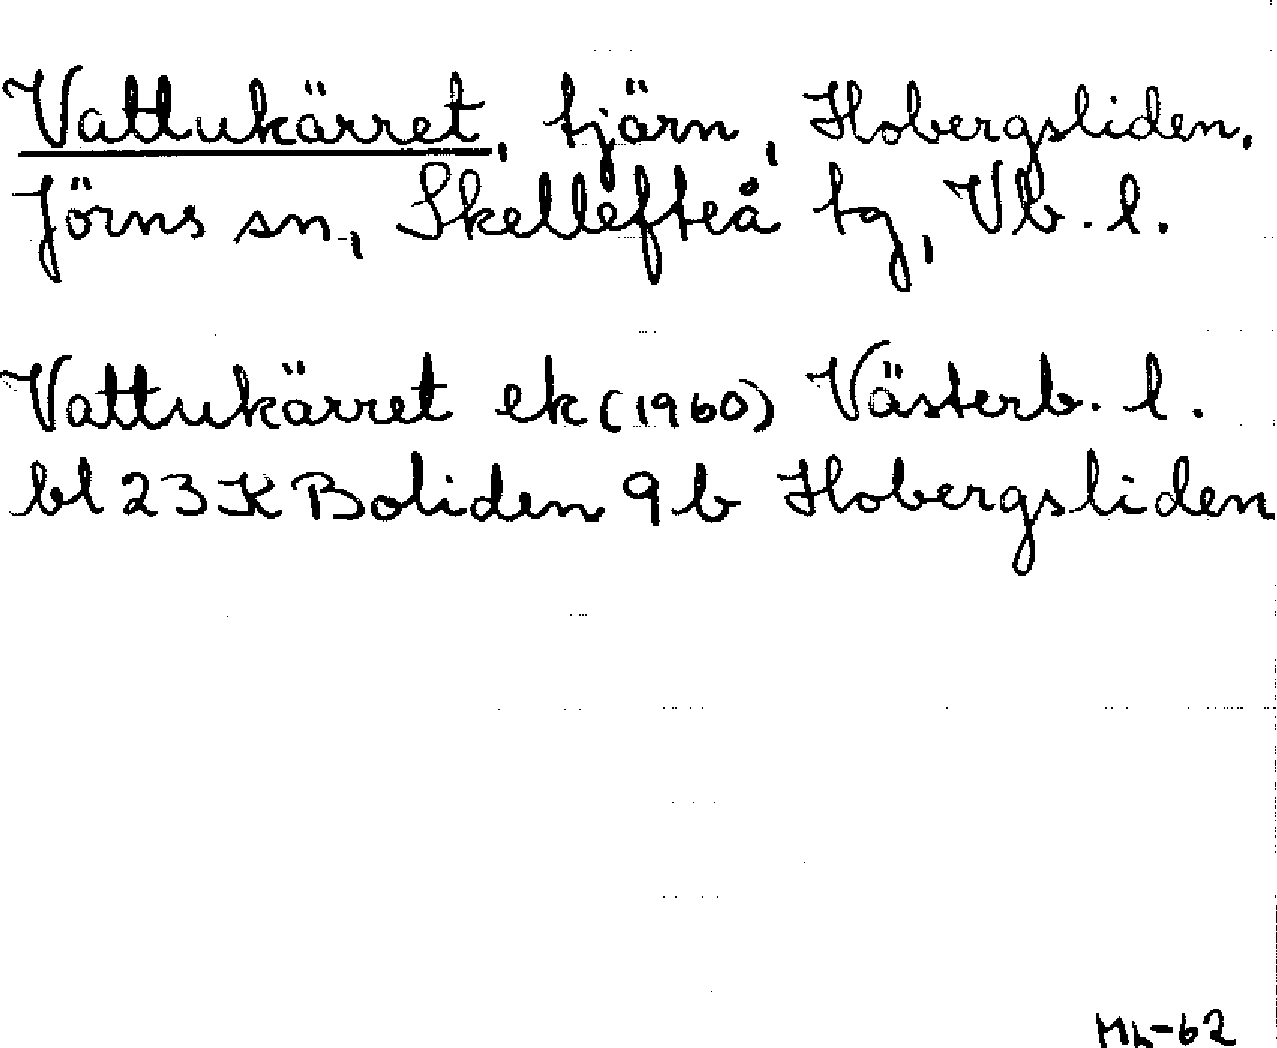 Vattukärret, tjärn, Hobergsliden,
Jörns sn, Skellefteå tg, Vb. l.
Vattukärret ek (1960) Västerb. l.
bl 23 K Boliden 9 b Hobergsliden